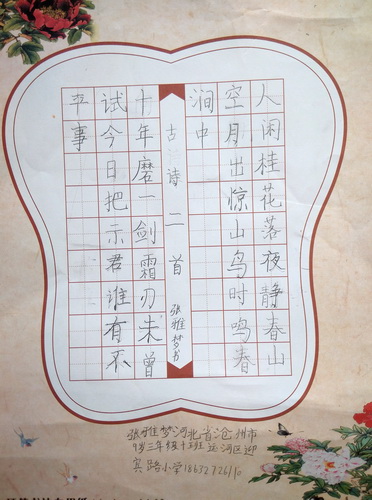 人闲桂花落夜静春山
空月出惊山鸟时鸣春
涧中
古诗二首 张雅梦书
十年磨一剑霜刃未曾
试今日把示君谁有不
平事
张雅梦河北省沧州市
9岁三年级十班 运河区迎
宾路小学